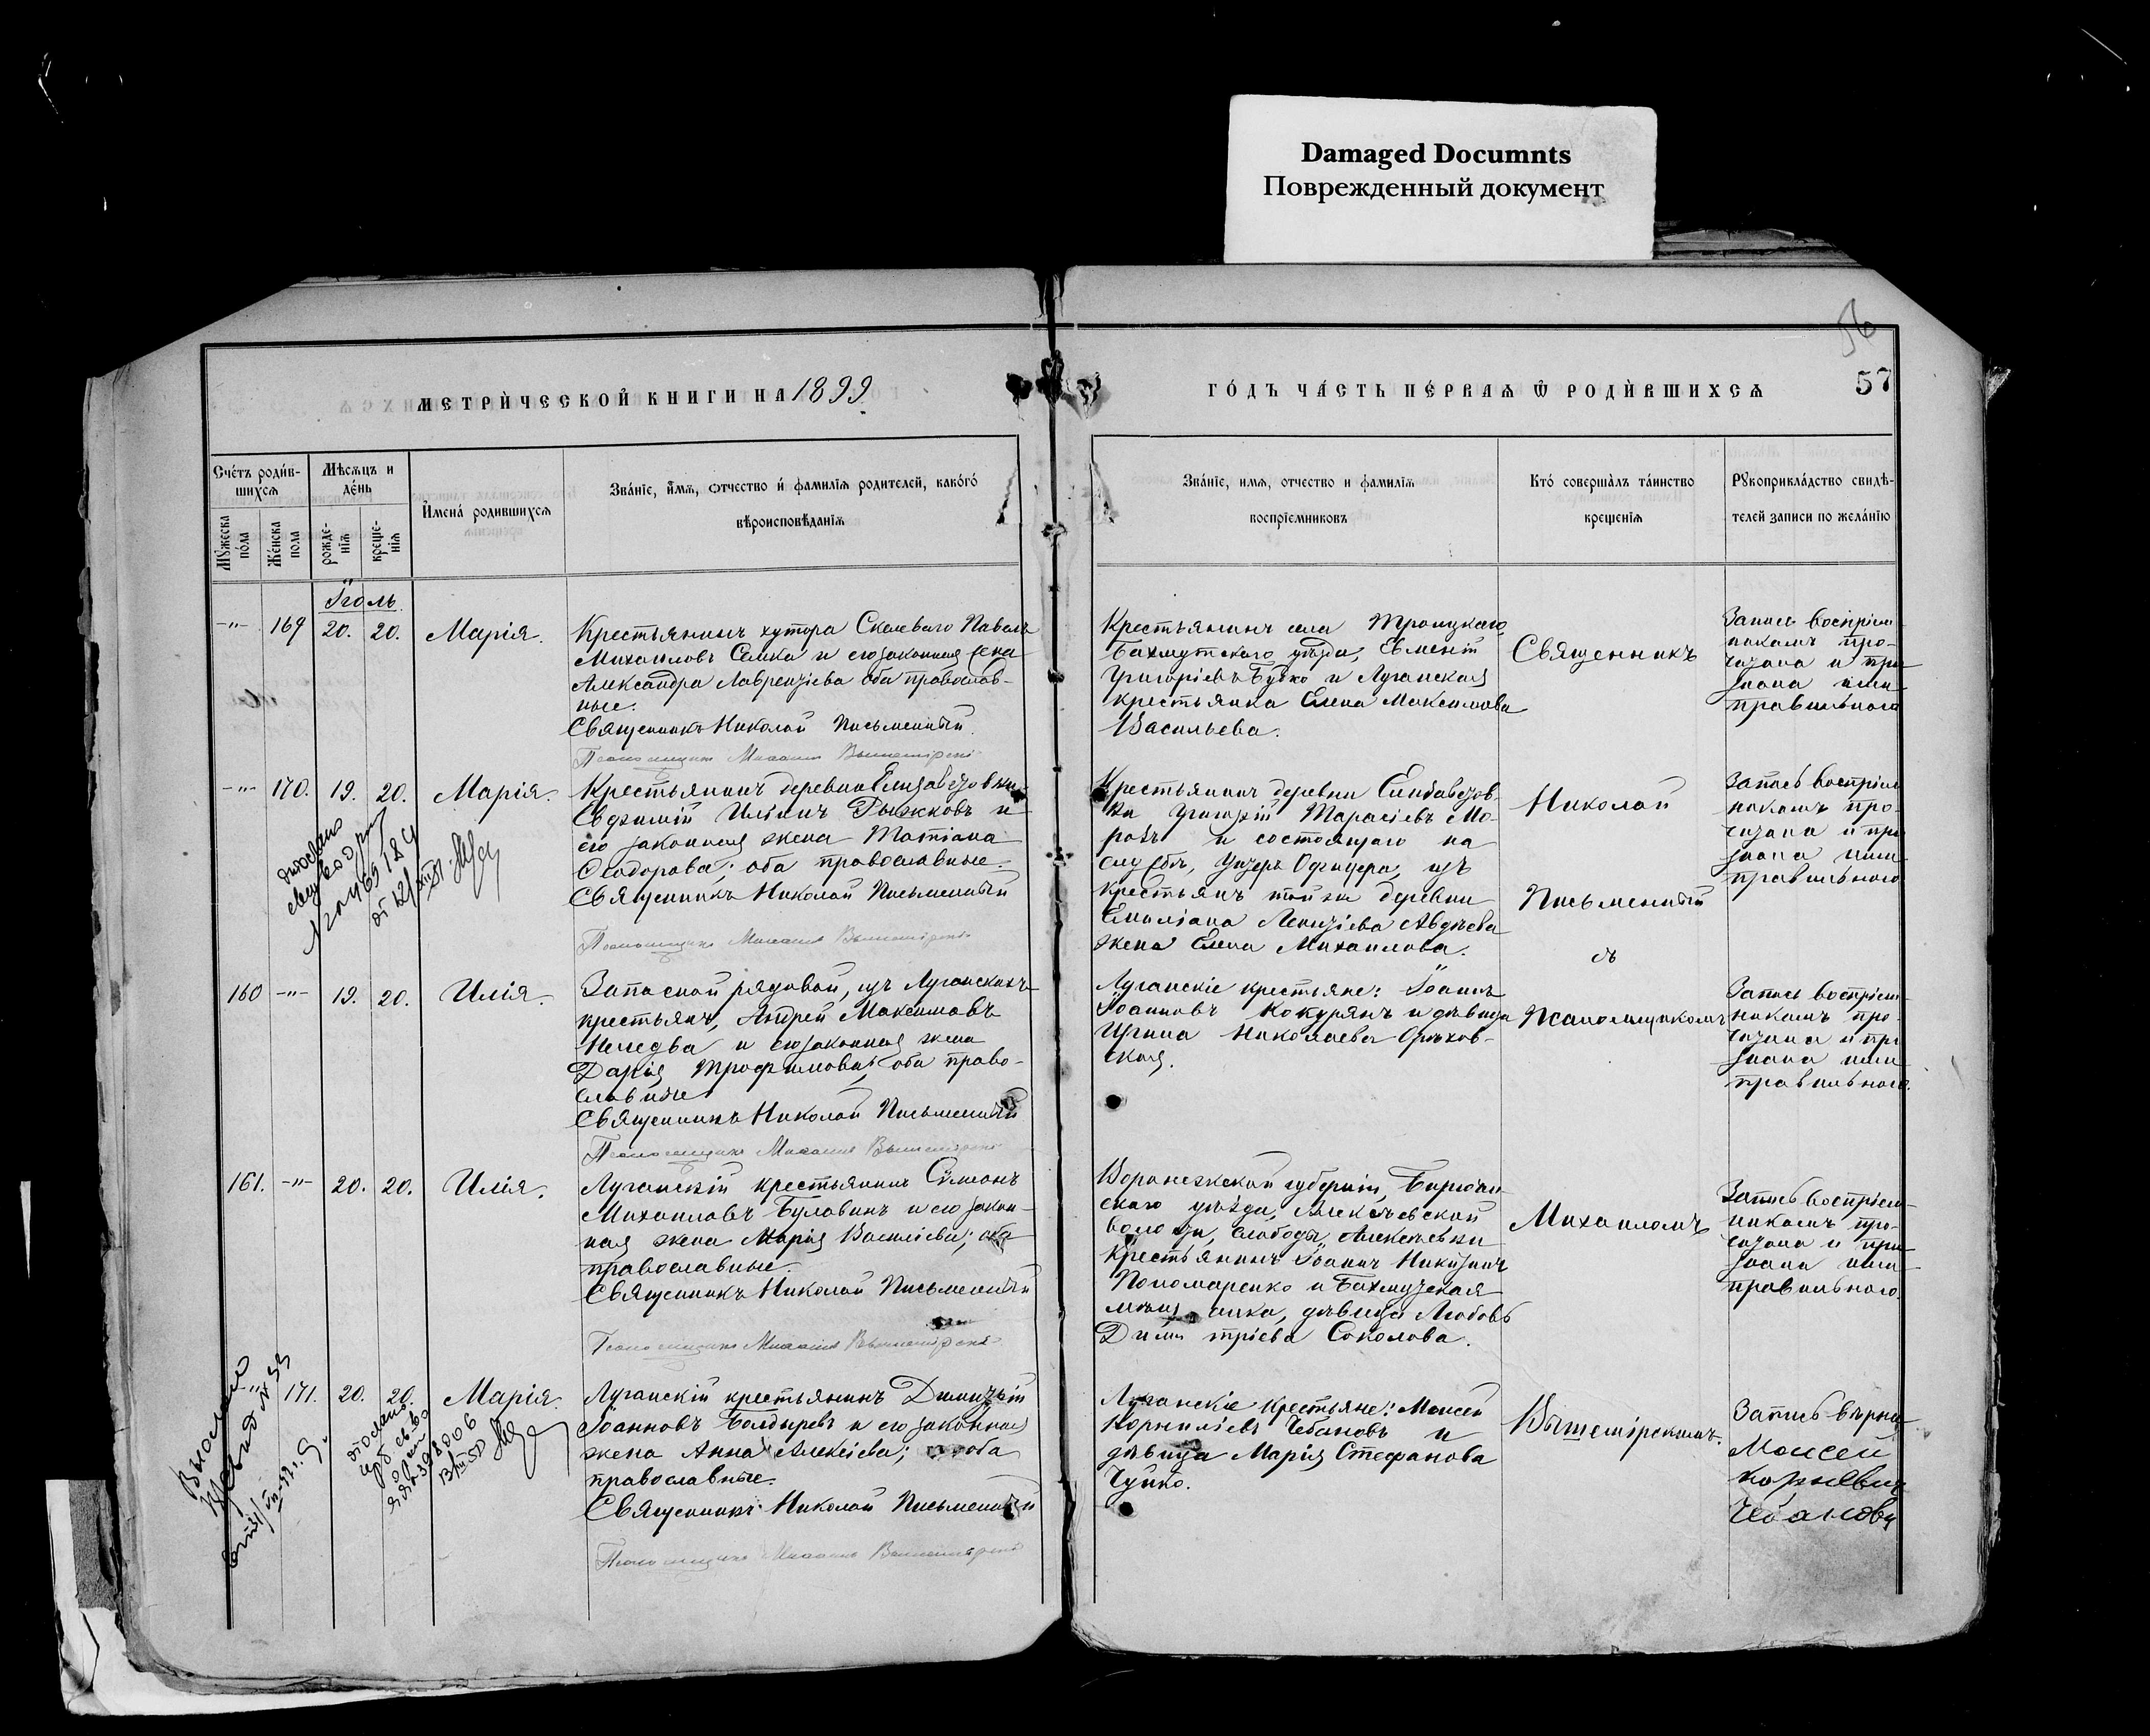 Damaged Documnts
Поврежденный документ
56
57
МЕТРИ́ЧЕСКОЙ КНИГИ НА 1899
ГО́ДЪ ЧА́СТЬ ПЕ́РВАѦ Ѿ РОДИ́ВШИХСѦ
Сче́тъ роди́в-
шихсѧ
Мꙋ́жеска
по́ла
Же́нска
пола
Мѣсѧцъ и
де́нь
рожде-
нїѧ
креще-
нїѧ
И́мена́ родившихсѧ
Зва́нїе, и́мѧ, ѻтчество и́ фамилїѧ родителей, како́гѡ́
вѣроисповѣданїѧ
Зва́нїе, имѧ, отчество и фамилїѧ
воспрїемниковъ
Кто́ соверша́лъ та́инство
крещенїѧ
Рꙋкоприкла́дство свидѣ-
телей записи по жела́нїю
Їюль
-"- 169 20. 20. Марія.
Крестьянинъ хутора Скелеваго Павелъ
Михаиловъ Семка и его законная жена
Александра Лаврентіева оба православ-
ные.
Священникъ Николай Письменный.
Псаломщикъ Михаилъ Вышемірскій
Крестьянинъ села Троицкаго
Бахмутскаго уѣзда, Евменій
Григоріевъ Бутко и Луганская
крестьянка Елена Максимова
Васильева.
Священникъ
Запись воспріем-
никамъ про-
читана и при
знана ими
правильною
-"- 170. 19. 20. Марія.
Крестьянинъ деревни Елизаветовки
Евфимій Ильинъ Рыжковъ и
его законная жена Татіана
Ѳеодорова; оба православные.
Священникъ Николай Письменный
Псаломщикъ Михаилъ Вышемірскій
Крестьянинъ деревни Елизаветов-
ки Григорій Тарасіевъ Мо-
розъ и состоящаго на
службѣ, Унтеръ Офицера, изъ
крестьянъ той же деревни
Емиліана Леонтіева Авдѣева
жена Елена Михаилова.
Николай
Письменный
съ
Запись воспріем-
никамъ про-
читана и при
знана ими
правильною
160 -"- 19. 20. Илія.
Запасной рядовой, изъ Луганскихъ
крестьянъ, Андрей Максимовъ
и его законная жена
Дарія Трофимова; оба право-
славные
Священникъ Николай Письменный
Псаломщикъ Михаилъ Вышемірскій
Луганскіе крестьяне: Іоаннъ
Іоанновъ Кокурянъ и дѣвица
Ирина Николаева Орѣхов-
ская.
Псаломщикомъ
Запись воспріем-
никамъ про-
читана и при
знана ими
правильною.
161. -"- 20. 20. Илія.
Луганскій крестьянинъ Сѵмеонъ
Михаиловъ Булавинъ и его закон-
ная жена Марія Василіева; оба
православные.
Священникъ Николай Письменный
Псаломщикъ Михаилъ Вышемірскій
Воронежской губерніи, Бирючен
скаго уѣзда, Алексѣевской
волости, слободы Алексѣевки
крестьянинъ Іоаннъ Никитинъ
Пономаренко и Бахмутская
мѣщанка, дѣвица Любовь
Димитріева Соколова.
Михаиломъ
Запись воспріем-
никамъ про-
читана и при
знана ими
правильною.
-"- 171. 20. 20. Марія.
Луганскій крестьянинъ Димитрій
Іоанновъ Болдыревъ и его законная
жена Анна Алексіева; оба
православные.
Священникъ Николай Письменный
Псаломщикъ Михаилъ Вышемірскій
Луганскіе крестьяне: Моисей
Корниліевъ Чебановъ и
дѣвица Марія Стефанова
Чуйко.
Вышемірскимъ.
Запись вѣрна
Моисей
Чебановъ